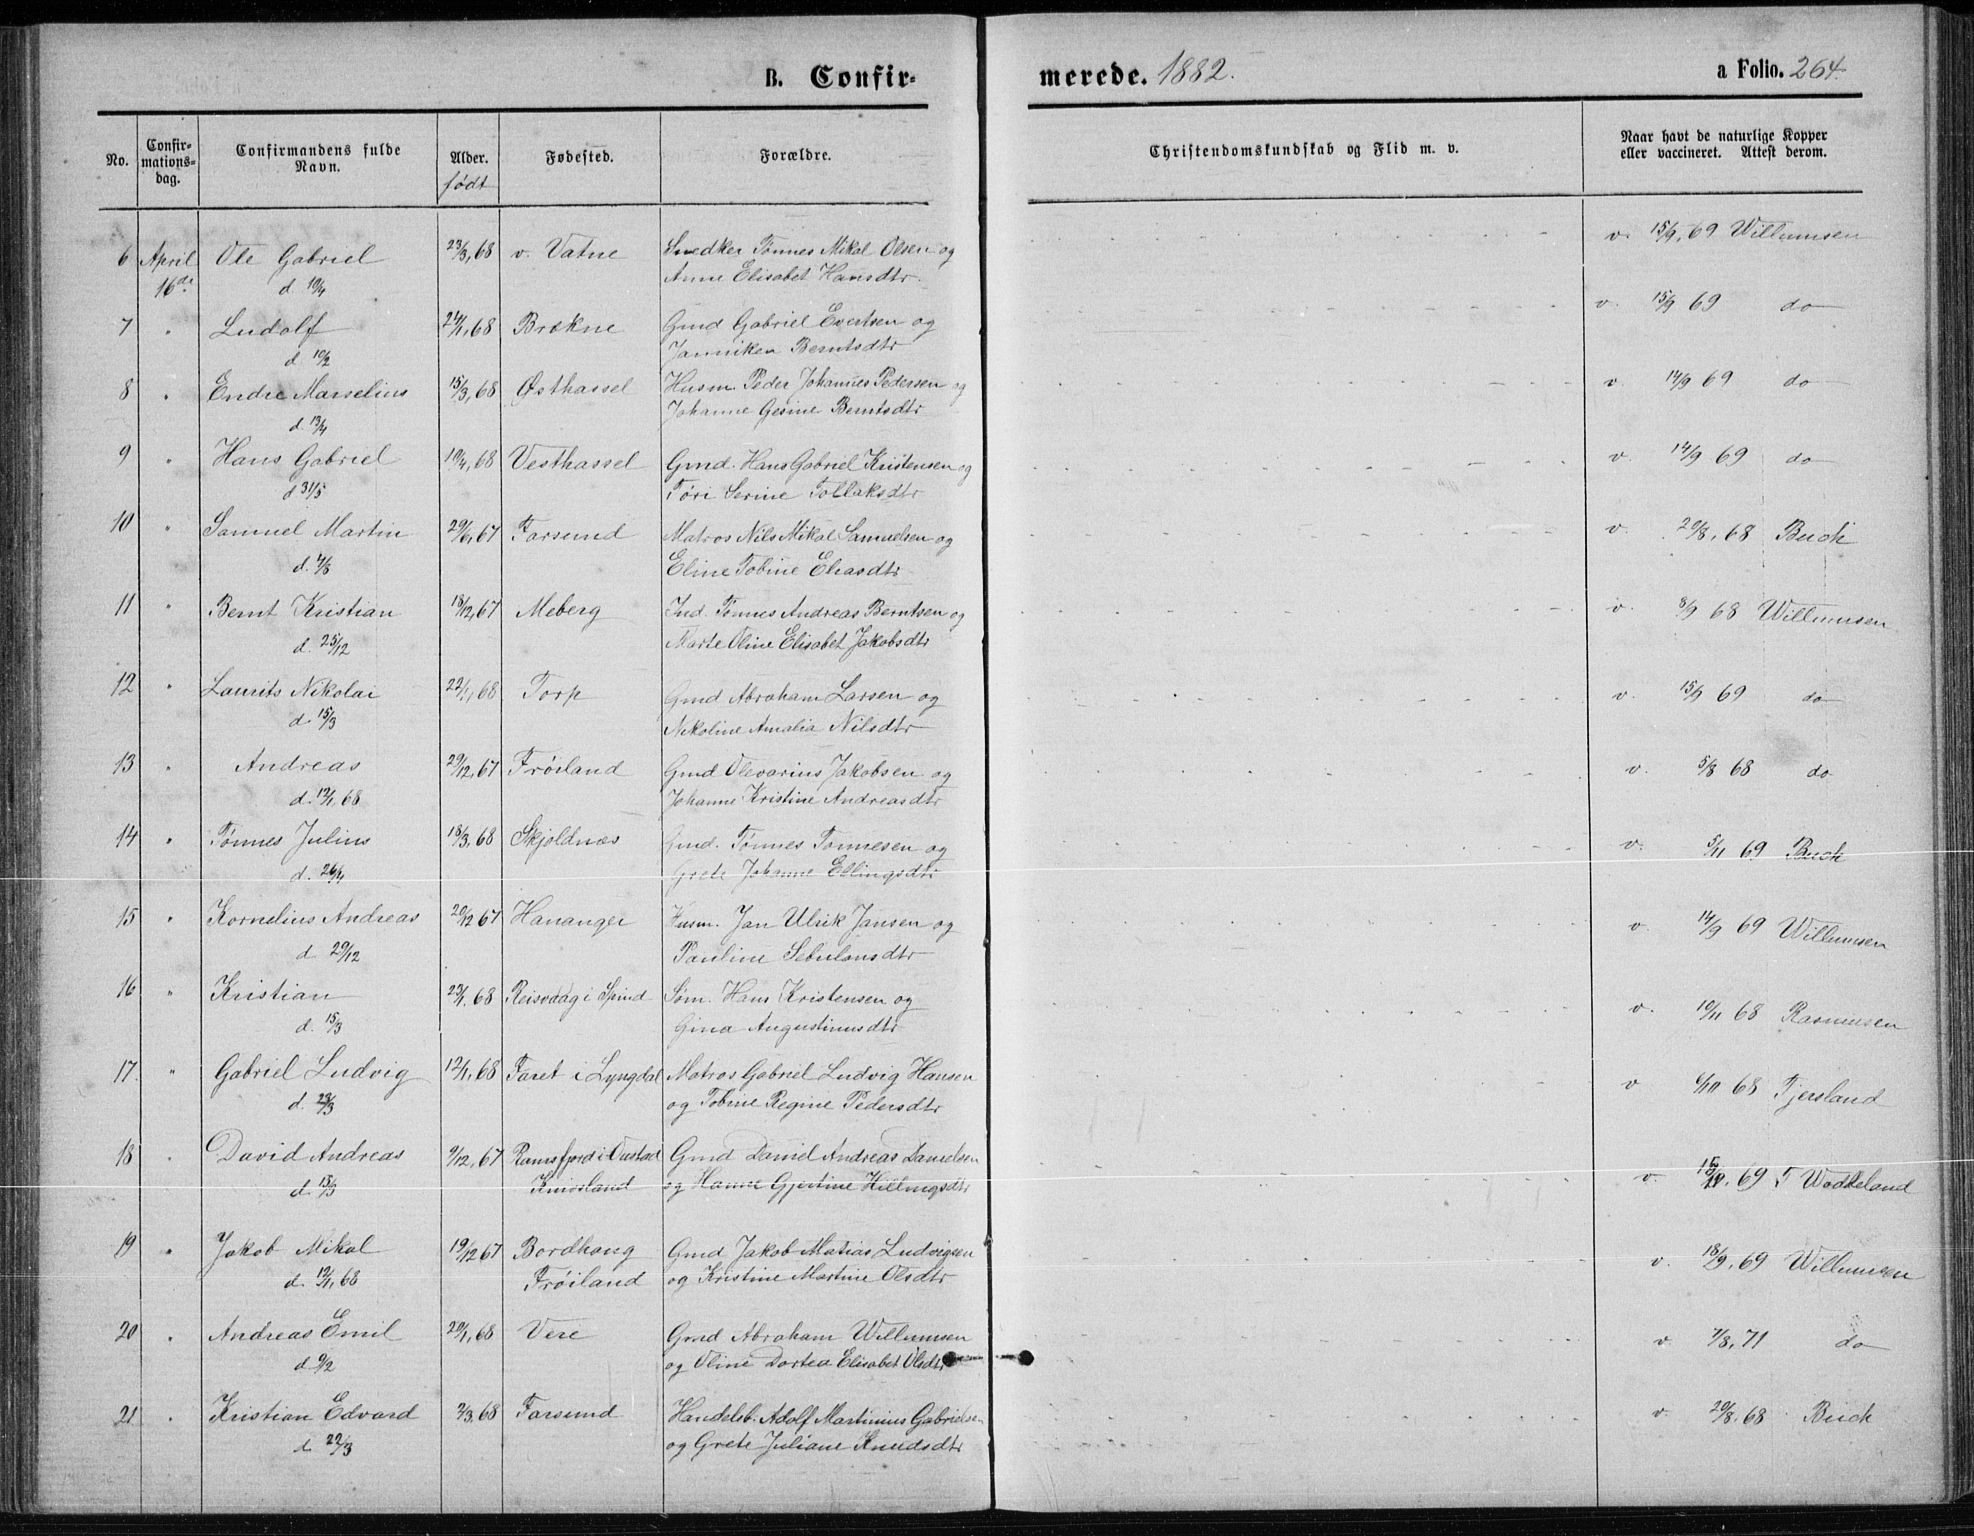 B. Confir-
merede. 1882.
a Folio. 264.
No.
Confir-
mations-
dag.
Confirmandens fulde
Navn.
Alder.
født
Fødested.
Forældre.
Christendomskundskab og Flid m. v.
Naar havt de naturlige Kopper
eller vaccineret. Attest derom.
6 April Ole Gabriel 23/3, 68 v. Vatne Snedker Tønnes Mikal Olsen og v. 15/9, 69 Willumsen
16de d. 19/4 Anne Elisabet Hansdtr.
7 " Ludolf 24/1, 68 Brekne Gmd Gabriel Evertsen og v. 15/9 69 do
d. 10/2 Janniken Berntsdtr
8 " Endre Marselius 15/3, 68 Østhassel Husm. Peder Johannes Pedersen og v. 14/9 69 do
d. 13/4 Johanne Gesine Berntsdtr
9 " Hans Gabriel 19/4, 68 Vesthassel Gmd. Hans Gabriel Kristensen og v. 14/9 69 do
d 31/5 Tøri Serine Tollaksdtr
10 " Samuel Martin 29/6, 67 Farsund Matros Nils Mikal Samuelsen og v. 20/8, 68 Buch
d. 4/8 Eline Tobine Eliasdtr
11 " Bernt Kristian 18/12, 67 Meberg Ind. Tønnes Andreas Berntsen og v. 8/9 68 Willumsen
d. 25/12 Marte Oline Elisabet Jakobsdtr
12 " Laurits Nikolai 22/1, 68 Torp Gmd Abraham Larsen og v. 15/9 69 do
d. 15/3 Nikoline Amalia Nilsdtr
13 " Andreas 29/12, 67 Frøiland Gmd Olevarius Jakobsen og v. 5/8 68 do
d. 12/1, 68 Johanne Kristine Andreasdtr
14 " Tønnes Julius 18/3, 68 Skjoldnæs Gmd. Tønnes Tønnesen og v. 5/11 69 Buch
d. 26/4 Grete Johanne Ellingsdtr
15 " Kornelius Andreas 20/12 67 Hananger Husm. Jan Ulrik Jansen og v. 14/9 69 Willumsen
d. 29/12 Pauline Sebulonsdtr
16 " Kristian 23/1, 68 Reisvaag i Spind Søm. Hans Kristensen og v. 19/11 68 Rasmusen
d. 15/3 Gina Augustinusdtr
17. " Gabriel Ludvig 12/1, 68 Faret i Lyngdal Matros Gabriel Ludvig Hansen v 6/10 68 Fjersland
d. 23/3 og Tobine Regine Pedersdtr
18 " David Andreas 9/12, 67 Ramsfjord i Gmd Daniel Andreas Danielsen v. 69 Woddeland
d. 13/3 og Hanne Gjertine
19 " Jakob Mikal 19/12 67 Bordhoug Gmd Jakob Matias Ludvigsen v. 18/9, 69 Willumsen
d. 12/1, 68 Frøiland og Kristine Martine Olsdtr
20 " Andreas Emil 20/1, 68 Vere Gmd Abraham Willumsen v 7/8, 71 do
d 9/2 og Oline Dortea Elisabet Olsdtr
21 " Kristian Edvard 2/3, 68 Farsund Handelsb. Adolf Martinius Gabrielsen v. 20/8, 68 Buch
d 22/3 og Grete Juliane Knudsdtr